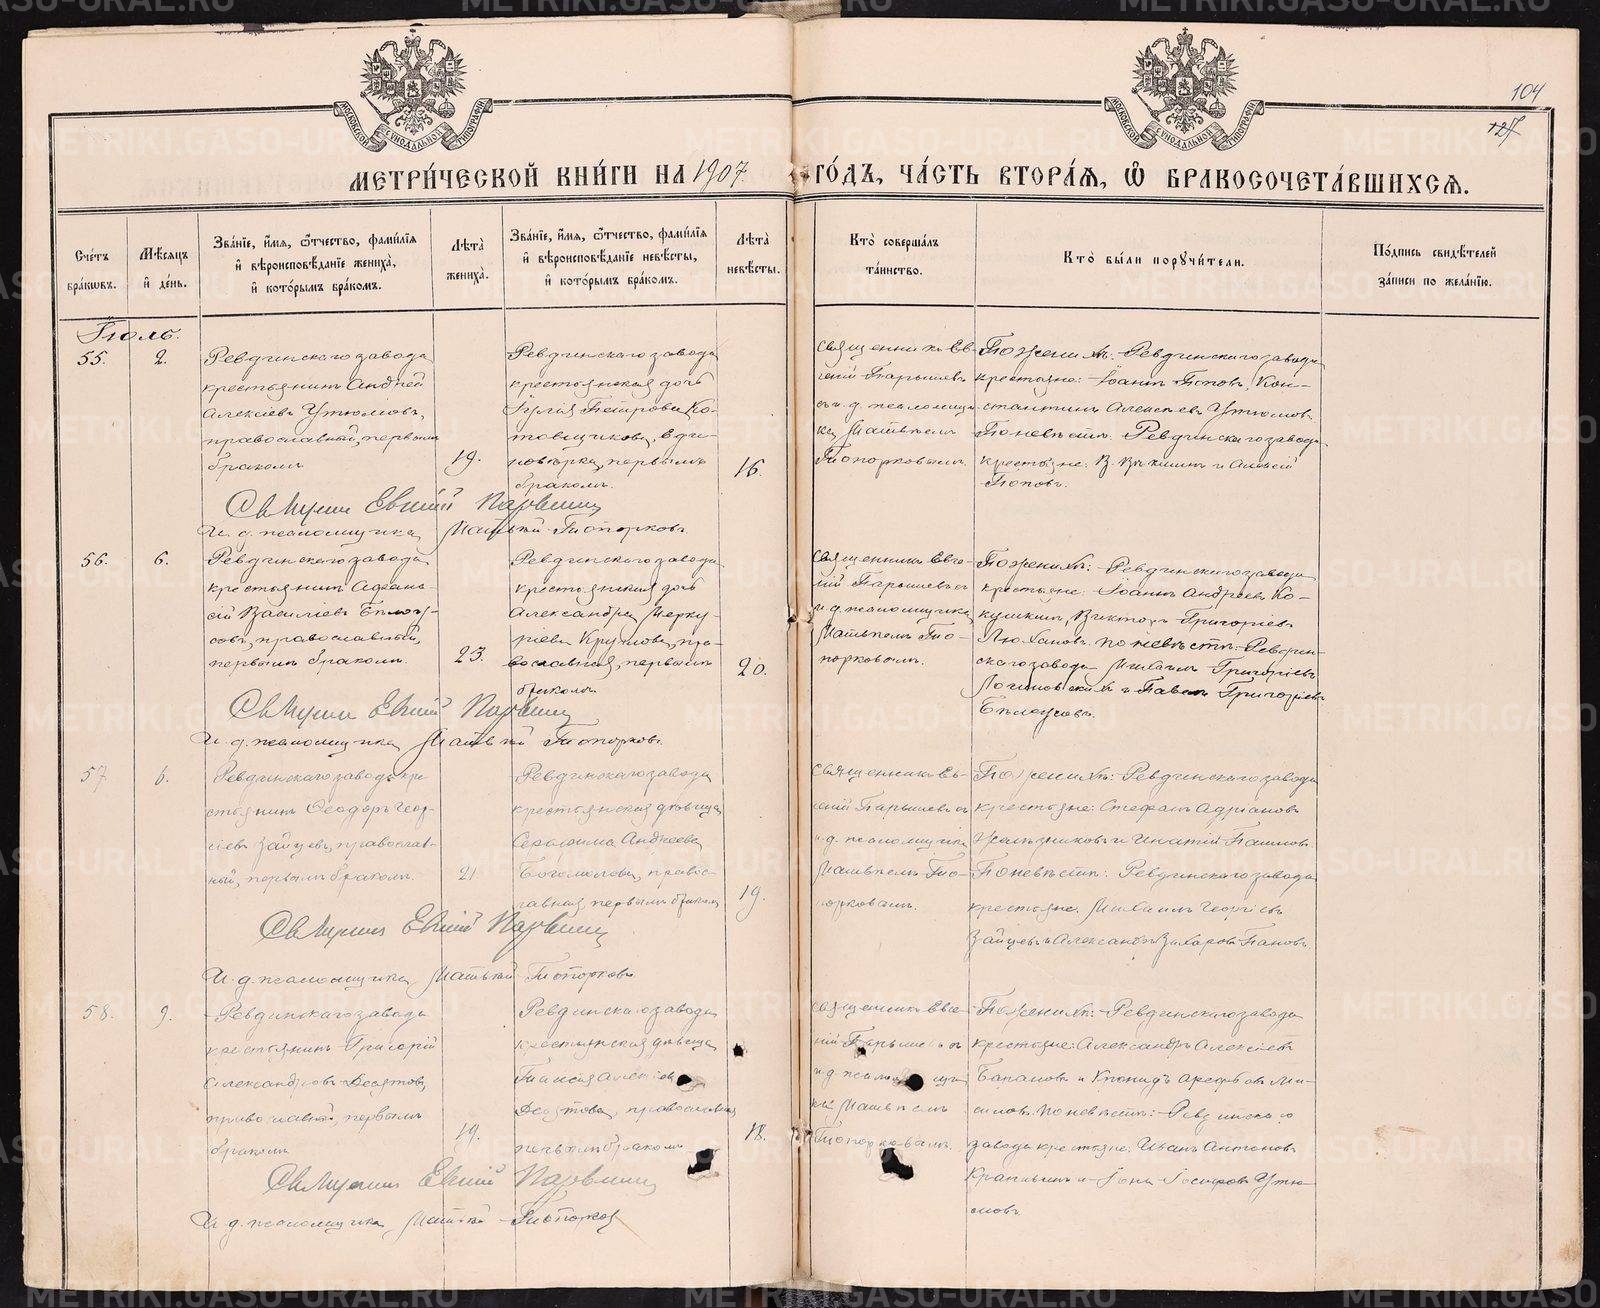 104
127
МЕТРИ́ЧЕСКОЙ КНИ́ГИ НА 1907 ГО́ДЪ, ЧА́СТЬ ВТОРА́Ѧ, Ѽ БРАКОСОЧЕТА́ВШИХСѦ.
Счетъ бра́кѡвъ.
Мѣ́сяцъ и҆ де́нь.
Зва́нїе, и҆́мѧ, ѻ҆́тчество, фами́лїѧ и҆ вѣроисповѣ́данїе жениха̀, и҆ кото́рымъ бра́комъ.
Лѣта̀ жениха̀.
Зва́нїе, и҆́мѧ, ѻ҆́тчество, фами́лїѧ и҆ вѣроисповѣ́данїе невѣ́сты, и҆ кото́рымъ бра́комъ.
Лѣта̀ невѣ́сты.
Кто̀ соверша́лъ та́инство.
Кто̀ бы́ли порꙋчи́тели.
По́дпись свидѣ́телей за́писи по жела́нїю.
Іюль.
55.
2.
Ревдинскаго завода
крестьянинъ Андрей
Алексіевъ Утюмовъ,
православный, первымъ
бракомъ
19.
Ревдинскаго завода
крестьянская дочь
Іулія Петрова Ко-
товщикова, еди-
новѣрка, первымъ
бракомъ.
16.
Священникъ Ев-
геній Парышевъ
съ и. д. псаломщи-
ка Матвѣемъ
Топорковымъ.
По женихѣ: Ревдинскаго завода
крестьяне: Іоаннъ Поповъ, Кон-
стантинъ Алексѣевъ Утюмовъ
По невѣстѣ: Ревдинскаго завода
крестьяне: В. и Алексѣй
Поповъ.
Священникъ Евгеній Парышевъ
И. д. псаломщика Матвѣй Топорковъ.
56.
6.
Ревдинскаго завода
крестьянинъ Афана-
сій Василіевъ Бѣлоу-
совъ, православный,
первымъ бракомъ.
23.
Ревдинскаго завода
крестьянская дочь
Александра Мерку-
ріева Крутова, пра-
вославная, первымъ
бракомъ
20.
Священникъ Евге-
ній Парышевъ съ
и. д. псаломщика
Матвѣемъ То-
порковымъ.
По женихѣ: Ревдинскаго завода
крестьяне: Іоаннъ Андреевъ Ко-
кушкинъ, Викторъ Григоріевъ
Люхановъ. По невѣстѣ: Ревдин-
скаго завода Михаилъ Григоріевъ
Логиновскихъ и Павелъ Григоріевъ
Бѣлоусовъ.
Священникъ Евгеній Парышевъ
И. д. псаломщика Матвѣй Топорковъ.
57
6.
Ревдинскаго завода кре-
стьянинъ Ѳеодоръ Геор-
гіевъ Зайцевъ, православ-
ный, первымъ бракомъ.
21
Ревдинскаго завода
крестьянская дѣвица
Серафима Андреева
Богомолова, правос-
лавная, первымъ бракомъ
19.
Священникъ Ев-
геній Парышевъ съ
и. д. псаломщика
Матвѣемъ То-
порковымъ.
По женихѣ: Ревдинскаго завода
крестьяне: Стефанъ Адріановъ
и Игнатій Пашковъ
По невѣстѣ: Ревдинскаго завода
крестьяне: Михаилъ Георгіевъ
Зайцевъ и Александръ Захаровъ Пановъ.
Священникъ Евгеній Парышевъ
И. д. псаломщика Матвѣй Топорковъ
58.
9.
Ревдинскаго завода
крестьянинъ Григорій
Александровъ Десятовъ,
православный, первымъ
бракомъ
19.
Ревдинскаго завода
крестьянская дѣвица
Таисія Алексіева
Десятова, православная
первымъ бракомъ
18.
Священникъ Евге-
ній Парышевъ съ
и. д. псаломщи-
ка Матвѣемъ
Топорковымъ.
По женихѣ: Ревдинскаго завода
крестьяне: Александръ Алексіевъ
Барановъ и
По невѣстѣ: Ревдинскаго
завода крестьяне: Иванъ Антоновъ
и Іона Іосифовъ Утю-
мовъ.
Священникъ Евгеній Парышевъ
И. д. псаломщика Матвѣй Топорковъ
METRIKI.GASO-URAL.RU